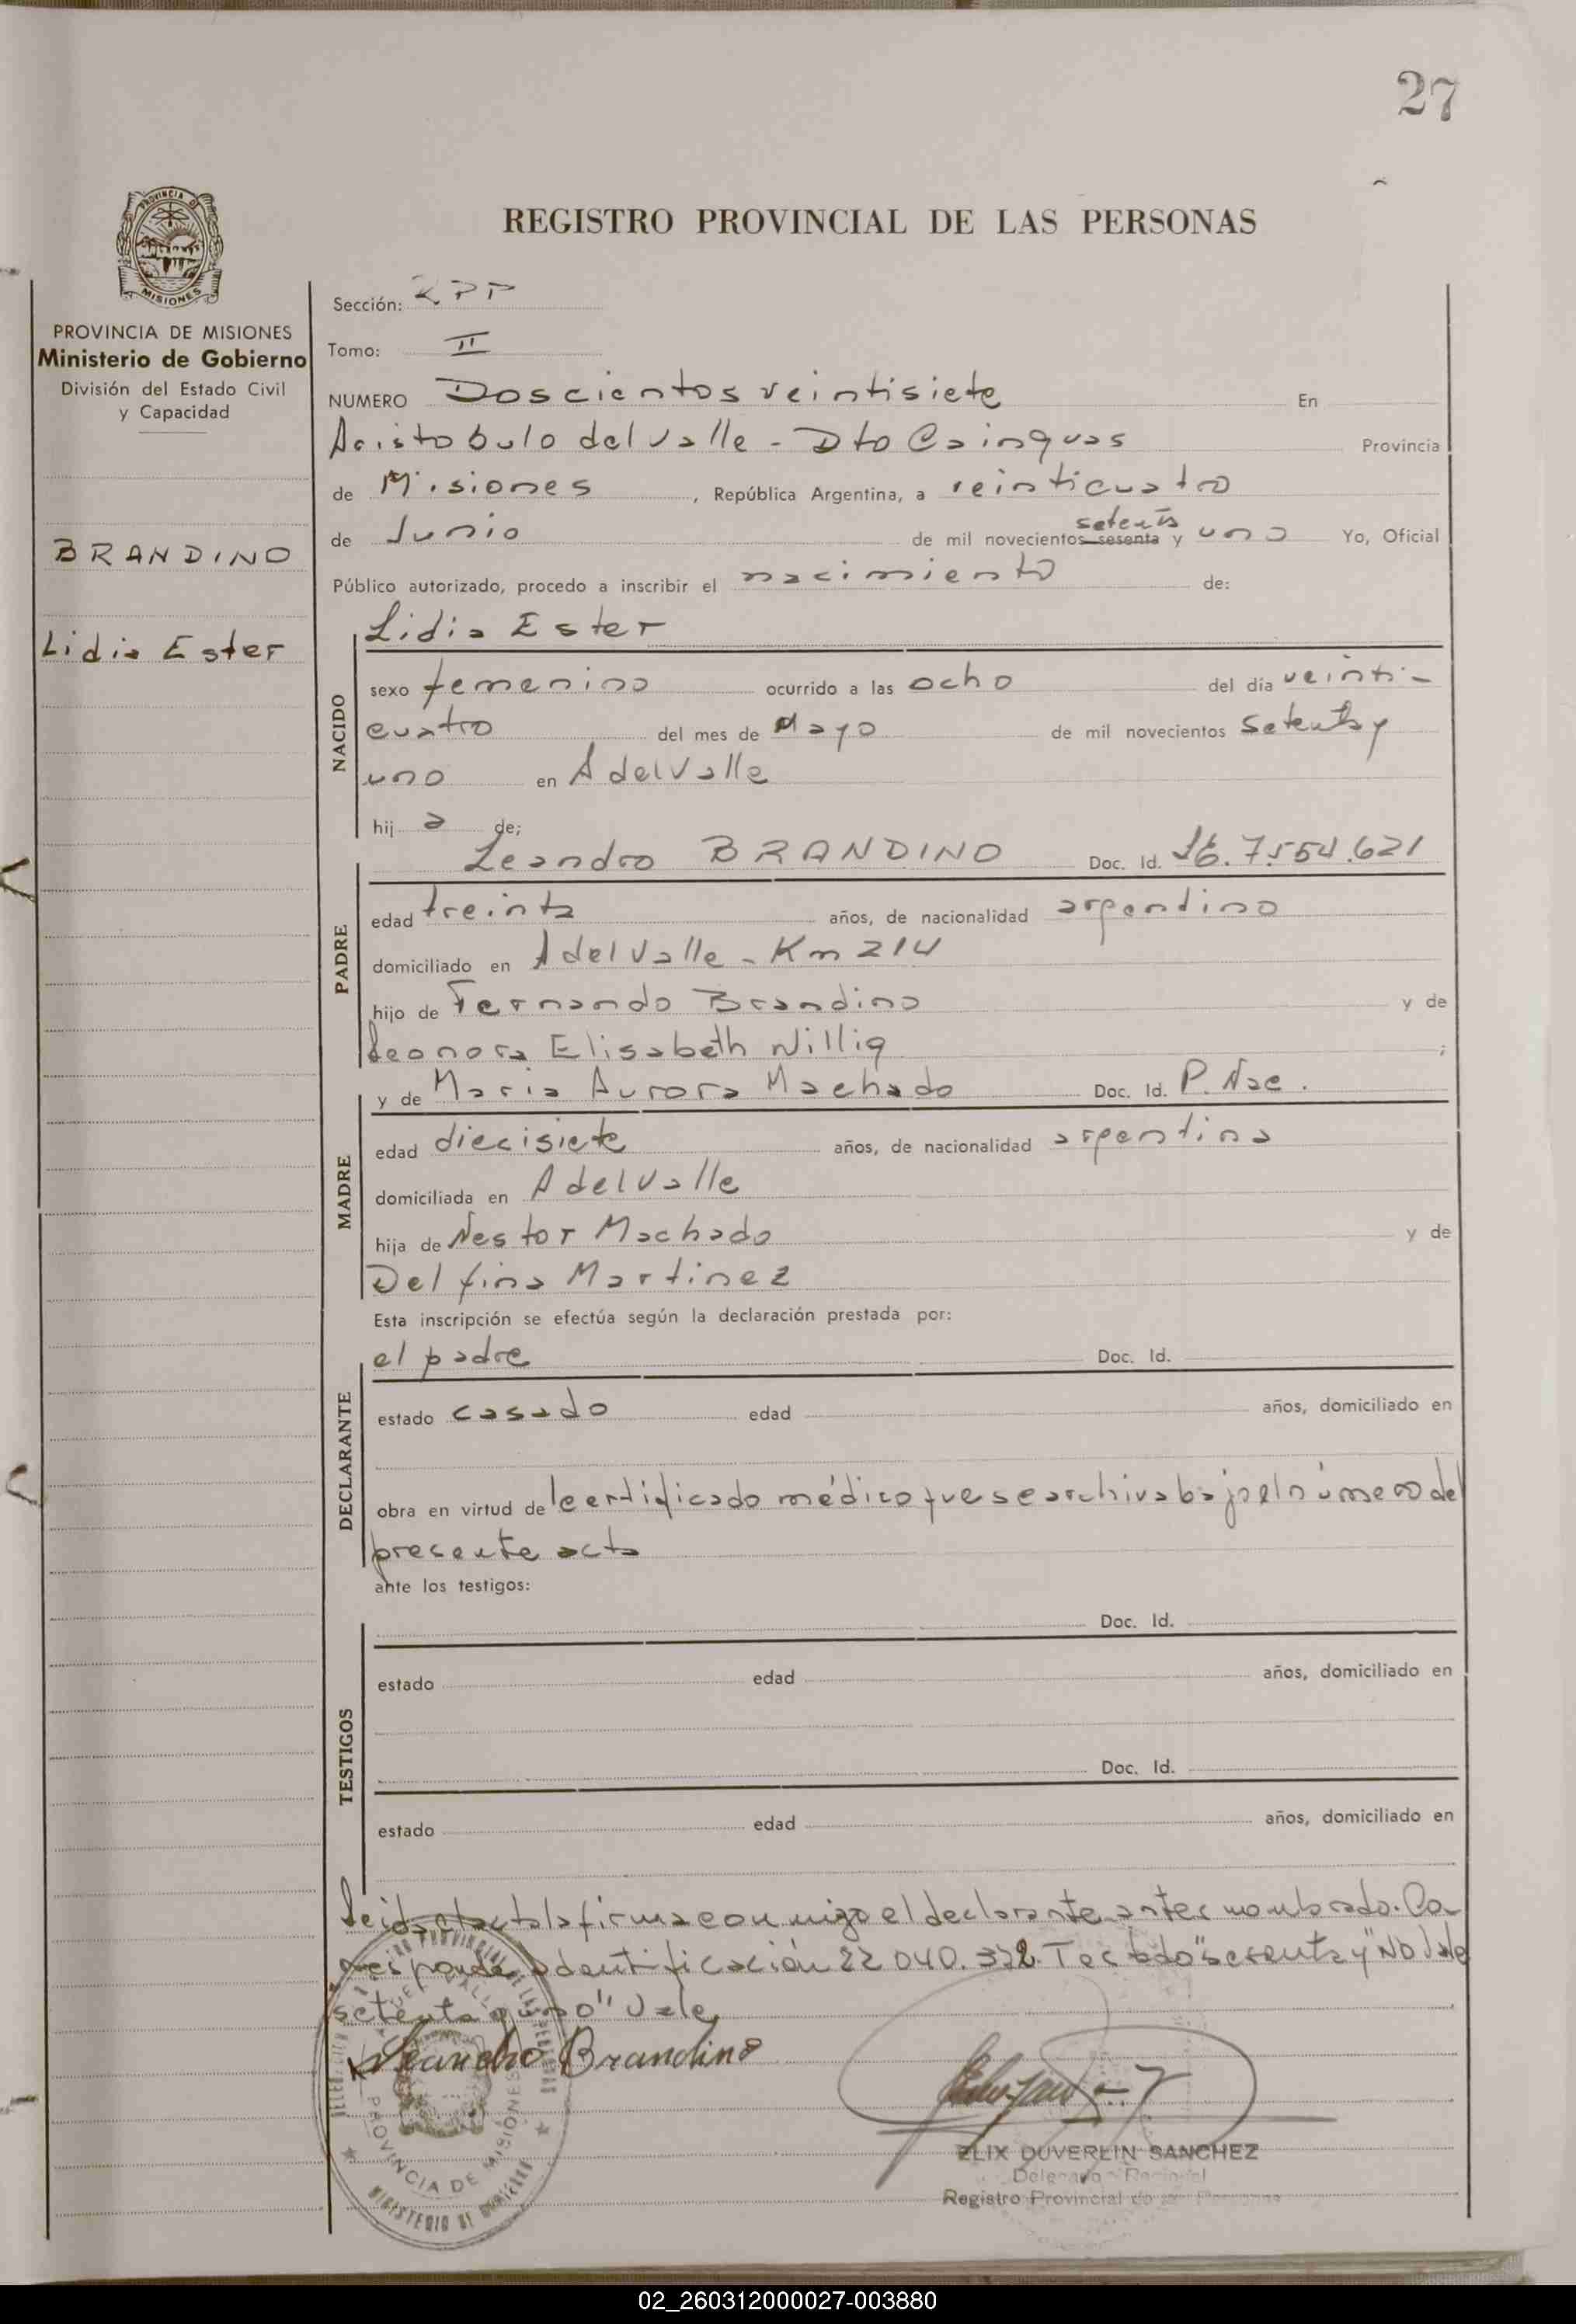 27
REGISTRO PROVINCIAL DE LAS PERSONAS
PROVINCIA DE
MISIONES
PROVINCIA DE MISIONES
Ministerio de Gobierno
División del Estado Civil
y Capacidad
BRANDINO
Lidia Ester
Sección: RPP
Tomo: II
NUMERO Doscientos veintisiete En
Aristobulo del Valle - Dto Cainguas Provincia
de Misiones, República Argentina, a veinticuatro
de Junio de mil novecientos sesenta setenta y uno Yo, Oficial
Público autorizado, procedo a inscribir el nacimiento de:
Lidia Ester
NACIDO
sexo femenino ocurrido a las ocho del día veinti-
cuatro del mes de Mayo de mil novecientos setenta y
uno en A del Valle
hij a de;
PADRE
Leandro BRANDINO Doc. Id. 7.554.621
edad treinta años, de nacionalidad argentino
domiciliado en A del Valle - Km 214
hijo de Fernando Brandino y de
Leonora Elisabeth Willig ;
MADRE
y de Maria Aurora Machado Doc. Id. P. Nac.
edad diecisiete años, de nacionalidad argentina
domiciliada en A del Valle
hija de Nestor Machado y de
Delfina Martinez
Esta inscripción se efectúa según la declaración prestada por:
DECLARANTE
el padre Doc. Id.
estado casado edad años, domiciliado en
obra en virtud del certificado médico que se archiva bajo el número del
presente acta
ante los testigos:
TESTIGOS
Doc. Id.
estado edad años, domiciliado en
Doc. Id.
estado edad años, domiciliado en
Leida el acta la firma conmigo el declarante antes nombrado. Co-
rresponde identificación 22 040. Testado "sesenta y" No Vale
setenta y uno" Vale
Leandro Brandino
PROVINCIA DE MISIONES
ELIX DUVERLIN SANCHEZ
Delegado
Registro Provincial de
02_260312000027-003880